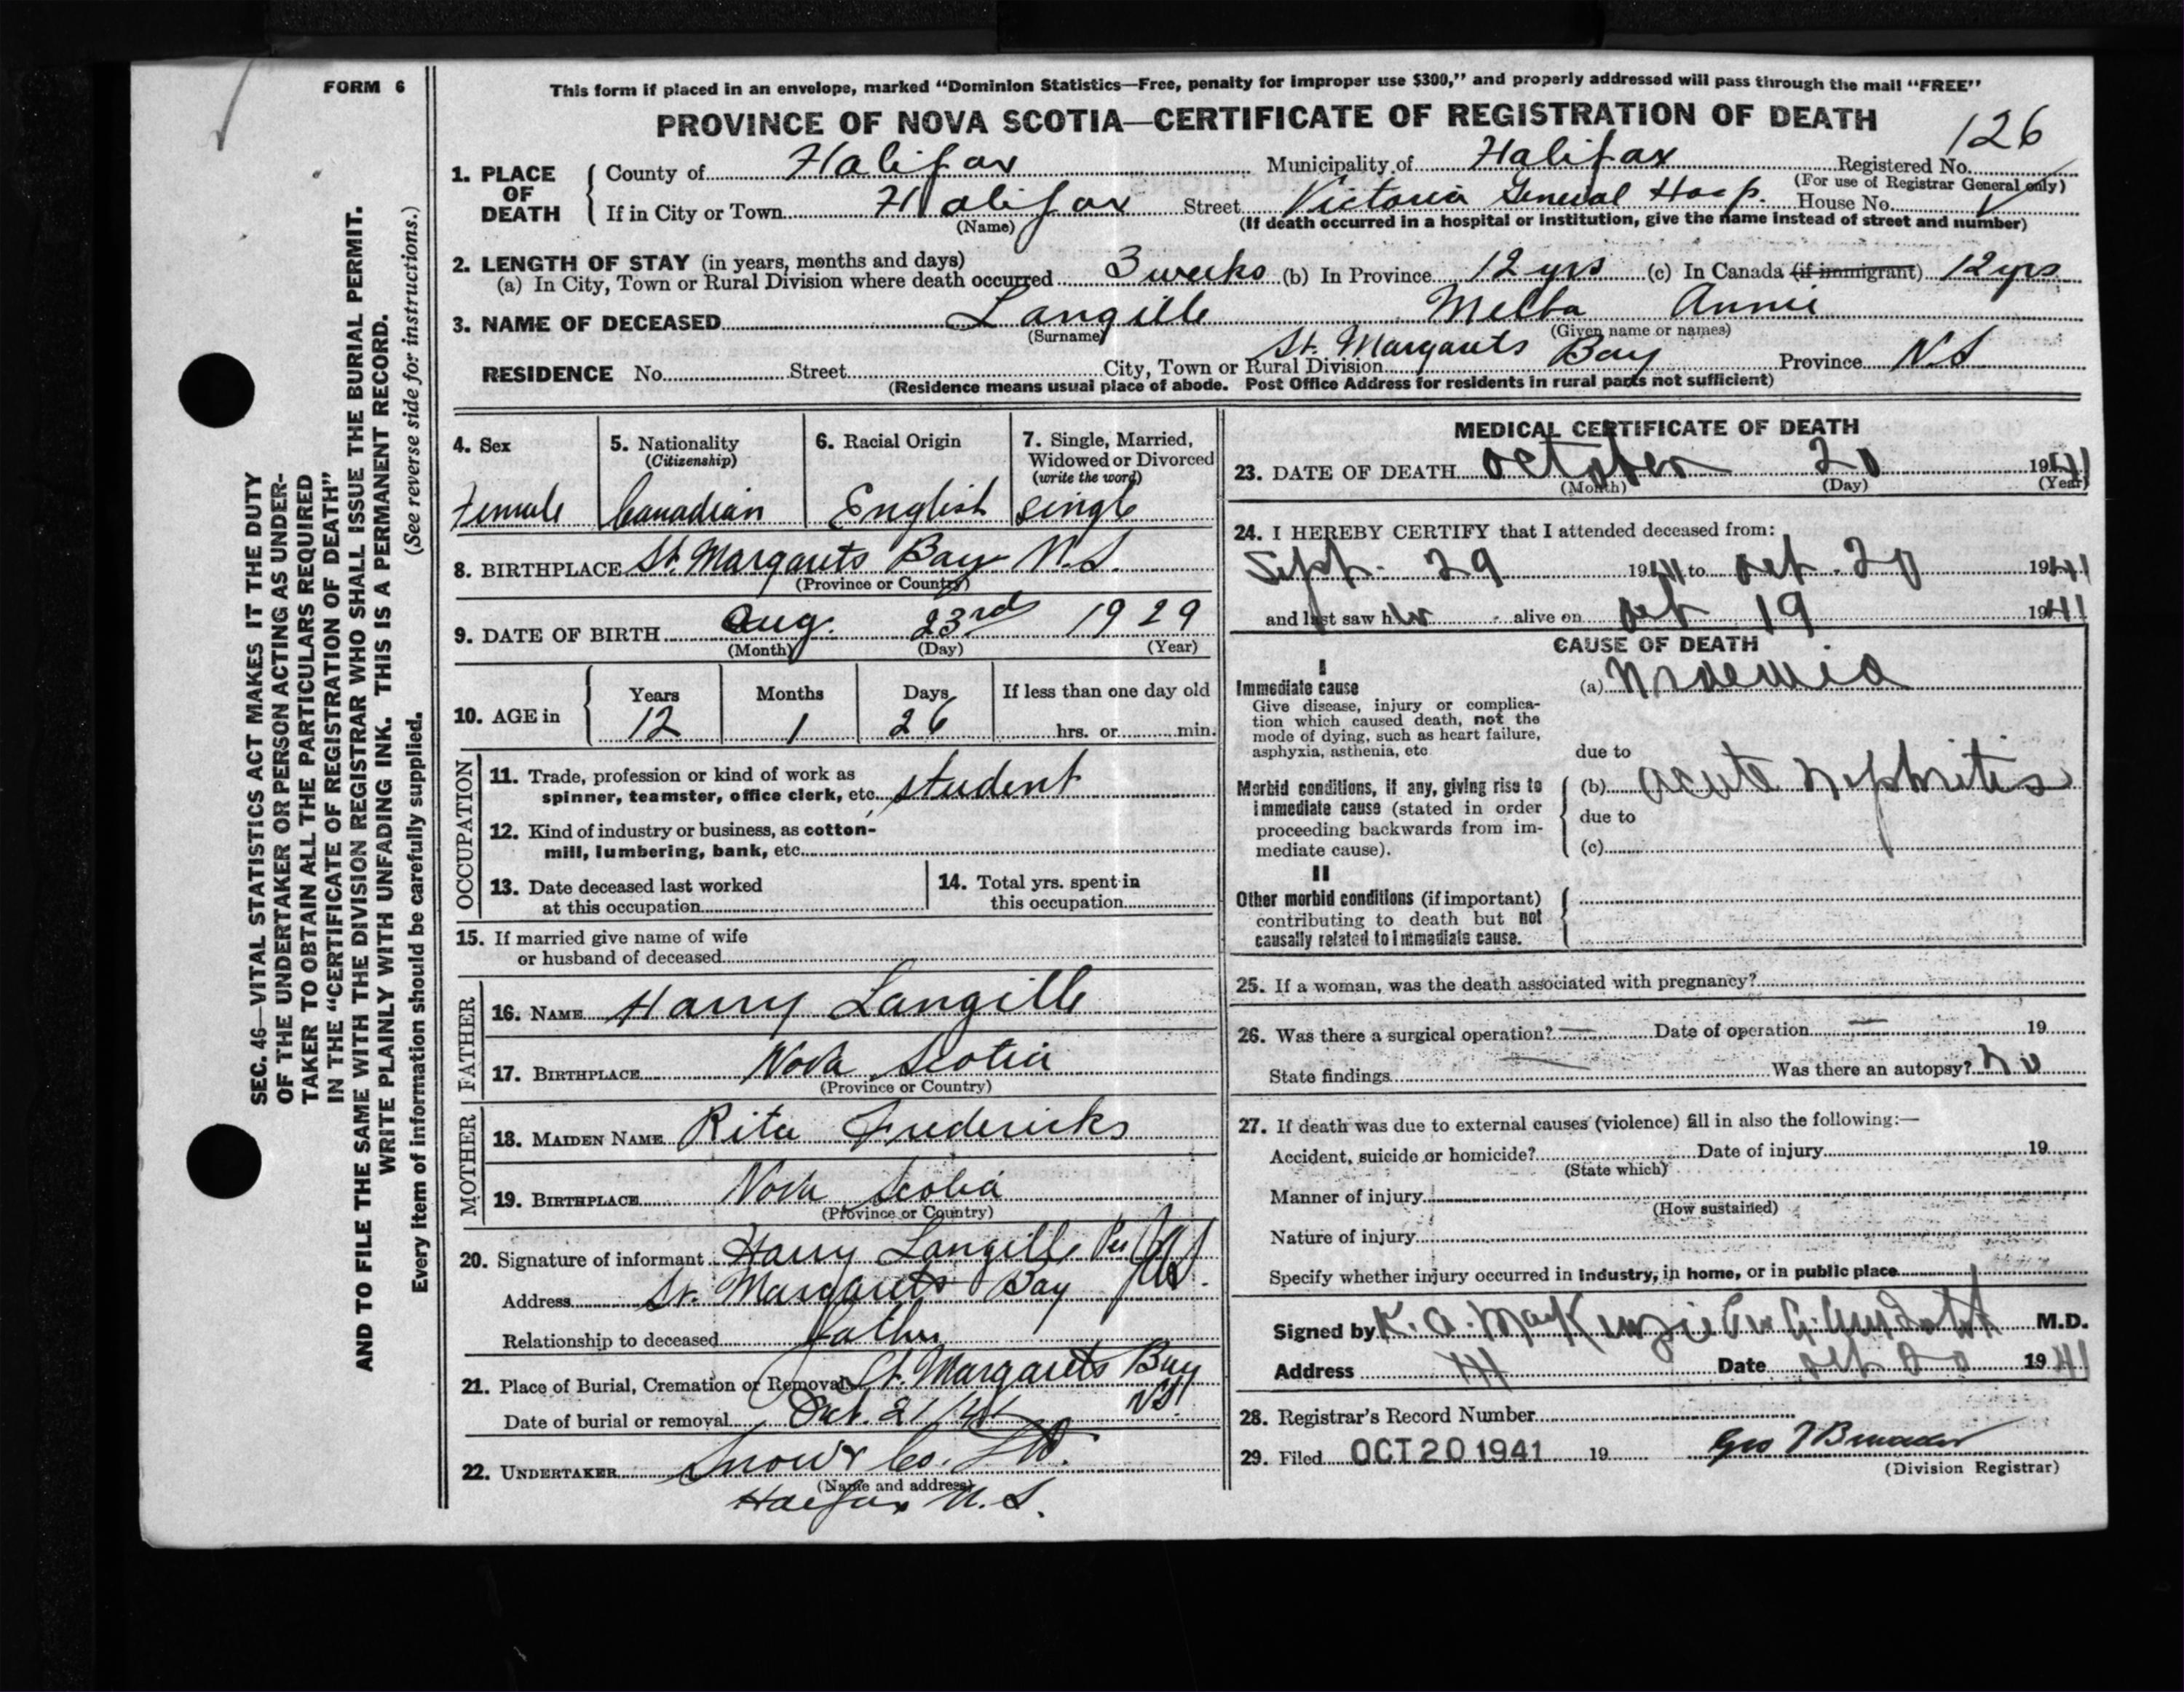 FORM 6
This form if placed in an envelope, marked “Dominion Statistics—Free, penalty for improper use $300,” and properly addressed will pass through the mail “FREE”
PROVINCE OF NOVA SCOTIA—CERTIFICATE OF REGISTRATION OF DEATH
126
1. PLACE OF DEATH
County of Halifax Municipality of Halifax Registered No.
(For use of Registrar General only)
If in City or Town Halifax Street Victoria General Hosp. House No.
(Name) (If death occurred in a hospital or institution, give the name instead of street and number)
2. LENGTH OF STAY (in years, months and days)
(a) In City, Town or Rural Division where death occurred 3 weeks (b) In Province 12 yrs (c) In Canada (if immigrant) 12 yrs
3. NAME OF DECEASED Langille Melba Annie
(Surname) (Given name or names)
RESIDENCE No. Street City, Town or Rural Division St. Margarets Bay Province N S
(Residence means usual place of abode. Post Office Address for residents in rural parts not sufficient)
4. Sex
Female
5. Nationality
(Citizenship)
Canadian
6. Racial Origin
English
7. Single, Married,
Widowed or Divorced
(write the word)
single
8. BIRTHPLACE St. Margarets Bay N.S.
(Province or Country)
9. DATE OF BIRTH Aug. 23rd 1929
(Month) (Day) (Year)
10. AGE in
Years Months Days If less than one day old
12 1 26 hrs. or min.
OCCUPATION
11. Trade, profession or kind of work as
spinner, teamster, office clerk, etc. student
12. Kind of industry or business, as cotton-
mill, lumbering, bank, etc.
13. Date deceased last worked
at this occupation
14. Total yrs. spent in
this occupation
15. If married give name of wife
or husband of deceased
FATHER
16. NAME Harry Langille
17. BIRTHPLACE Nova Scotia
(Province or Country)
MOTHER
18. MAIDEN NAME Rita Fredericks
19. BIRTHPLACE Nova Scotia
(Province or Country)
20. Signature of informant Harry Langille Per
Address St. Margarets Bay N.S.
Relationship to deceased father
21. Place of Burial, Cremation or Removal St. Margarets Bay
N.S.
Date of burial or removal Oct. 21/41
22. UNDERTAKER Snow & Co. Ltd.
(Name and address)
Halifax N.S.
MEDICAL CERTIFICATE OF DEATH
23. DATE OF DEATH October 20 1941
(Month) (Day) (Year)
24. I HEREBY CERTIFY that I attended deceased from:
Sept. 29 1941 to Oct. 20 1941
and last saw her alive on Oct 19 1941
CAUSE OF DEATH
I
Immediate cause
Give disease, injury or complica-
tion which caused death, not the
mode of dying, such as heart failure,
asphyxia, asthenia, etc
(a) Uraemia
due to
Morbid conditions, if any, giving rise to
immediate cause (stated in order
proceeding backwards from im-
mediate cause).
(b) acute nephritis
due to
(c)
II
Other morbid conditions (if important)
contributing to death but not
causally related to immediate cause.
25. If a woman, was the death associated with pregnancy?
26. Was there a surgical operation? — Date of operation — 19
State findings — Was there an autopsy? No
27. If death was due to external causes (violence) fill in also the following:—
Accident, suicide or homicide? Date of injury 19
(State which)
Manner of injury
(How sustained)
Nature of injury
Specify whether injury occurred in industry, in home, or in public place
Signed by K. A. MacKenzie Per M.D.
Address Date Oct 20 1941
28. Registrar's Record Number
29. Filed OCT 20 1941 19
(Division Registrar)
SEC. 46—VITAL STATISTICS ACT MAKES IT THE DUTY
OF THE UNDERTAKER OR PERSON ACTING AS UNDER-
TAKER TO OBTAIN ALL THE PARTICULARS REQUIRED
IN THE “CERTIFICATE OF REGISTRATION OF DEATH”
AND TO FILE THE SAME WITH THE DIVISION REGISTRAR WHO SHALL ISSUE THE BURIAL PERMIT.
WRITE PLAINLY WITH UNFADING INK. THIS IS A PERMANENT RECORD.
Every item of information should be carefully supplied. (See reverse side for instructions.)